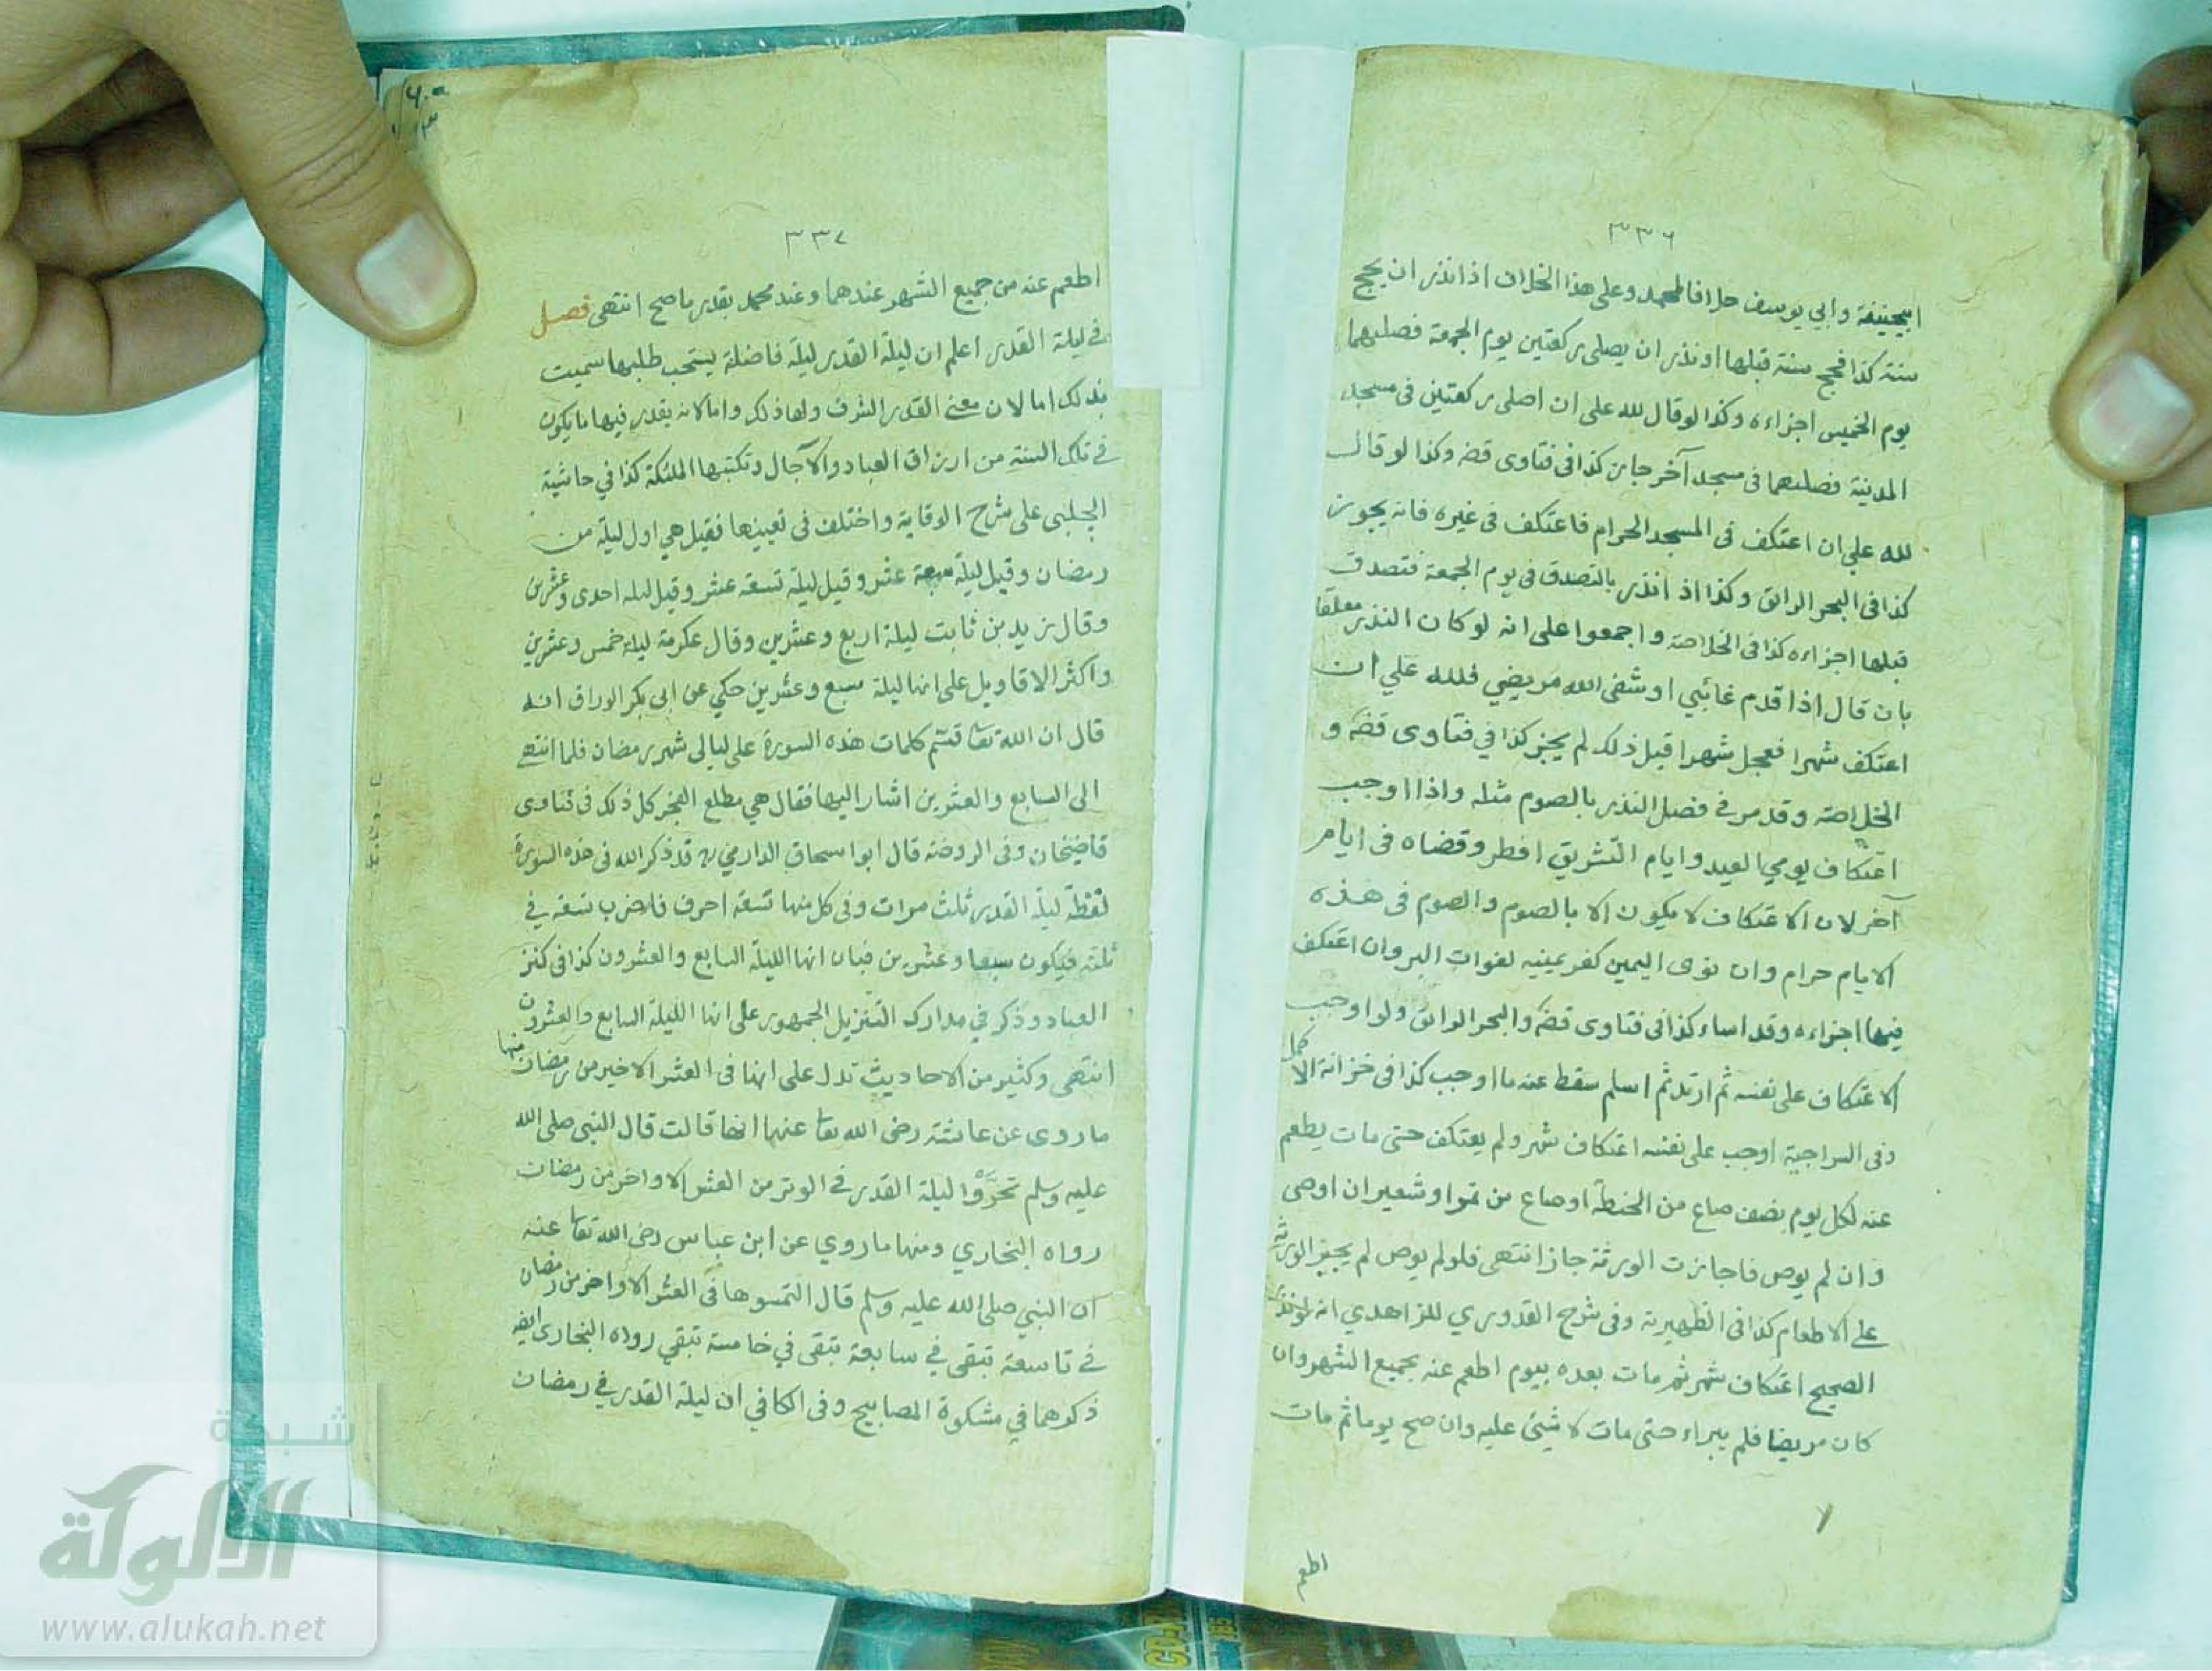 ٣٣٦
ابيحنيفة وابي يوسف خلافا لمحمد وعلى هذا الخلاف اذا نذر ان يحج
سنة كذا فحج سنة قبلها او نذر ان يصلى ركعتين يوم الجمعة فصليهما
يوم الخميس اجزاءه وكذا لو قال لله على ان اصلى ركعتين فى مسجد
المدنية فصليهما فى مسجد آخر جاز كذا فى فتاوى قضه وكذا لو قال
لله علي ان اعتكف فى المسجد الحرام فاعتكف فى غيره فانه يجوز
كذا فى البحر الرائق وكذا اذا نذر بالتصدق فى يوم الجمعة فتصدق
قبلها اجزاءه كذا فى الخلاصة واجمعوا على انه لو كان النذر معلقا
بان قال اذا قدم غائبي او شفى الله مريضي فلله علي ان
اعتكف شهرا فعجل شهرا قبل ذلك لم يجز كذا في فتاوى قضه و
الخلاصة وقد مر في فصل النذر بالصوم مثله واذا اوجب
اعتكاف يومي العيد وايام التشريق افطر وقضاه فى ايام
آخر لان الاعتكاف لا يكون الا بالصوم والصوم فى هذه
الايام حرام وان نوى اليمين كفر يمينه لفوات البر وان اعتكف
فيها اجزاءه وقد اساء كذا فى فتاوى قضه والبحر الرائق ولو اوجب
الاعتكاف على نفسه ثم ارتد ثم اسلم سقط عنه ما اوجب كذا فى خزانة الاكمل
وفى السراجية اوجب على نفسه اعتكاف شهر ولم يعتكف حتى مات يطعم
عنه لكل يوم نصف صاع من الحنطة او صاع من تمر او شعير ان اوصى
وان لم يوص فاجازت الورثة جاز انتهى فلو لم يوص لم يجبر الورثة
على الاطعام كذا فى الظهيرية وفى شرح القدوري للزاهدي انه لو نذر
الصحيح اعتكاف شهر ثم مات بعده بيوم اطعم عنه بجميع الشهر وان
كان مريضا فلم يبراء حتى مات لا شيئ عليه وان صح يوما ثم مات
اطعم
٣٣٧
اطعم عنه من جميع الشهر عندهما وعند محمد بقدر ما صح انتهى فصل
في ليلة القدر اعلم ان ليلة القدر ليلة فاضلة يستحب طلبها سميت
بذلك اما لان معنى القدر الشرف ولها ذلك واما لانه يقدر فيها ما يكون
في تلك السنة من ارزاق العباد والآجال وتكتبها الملئكة كذا في حاشية
الچلبى على شرح الوقاية واختلف فى تعيينها فقيل هي اول ليلة من
رمضان وقيل ليلة سبعة عشر وقيل ليلة تسعة عشر وقيل ليلة احدى وعشرين
وقال زيد بن ثابت ليلة اربع وعشرين وقال عكرمة ليلة خمس وعشرين
واكثر الاقاويل على انها ليلة سبع وعشرين حكي عن ابى بكر الوراق انه
قال ان الله تعا قسم كلمات هذه السورة على ليالى شهر رمضان فلما انتهى
الى السابع والعشرين اشار اليها فقال هي مطلع الفجر كل ذلك فى فتاوى
قاضيخان وفى الروضة قال ابو اسحاق الدارمي ره قد ذكر الله فى هذه السورة
لفظة ليلة القدر ثلث مرات وفى كل منها تسعة احرف فاضرب تسعة في
ثلثة فيكون سبعا وعشرين فبان انها الليلة السابع والعشرون كذا فى كنز
العباد وذكر في مدارك التنزيل الجمهور على انها الليلة السابع والعشرون
انتهى وكثير من الاحاديث تدل على انها فى العشر الاخير من رمضان منها
ما روى عن عائشة رضى الله تعا عنها انها قالت قال النبى صلى الله
عليه وسلم تحرَّوْا ليلة القدر في الوتر من العشر الاواخر من رمضان
رواه البخاري ومنها ما روي عن ابن عباس رضى الله تعا عنه
ان النبي صلى الله عليه وسلم قال التمسوها فى العشر الاواخر من رمضان
في تاسعة تبقى في سابعة تبقى في خامسة تبقي رواه البخارى ايضه
ذكرهما في مشكوة المصابيح وفى الكافي ان ليلة القدر في رمضان
شبكة
الألوكة
www.alukah.net